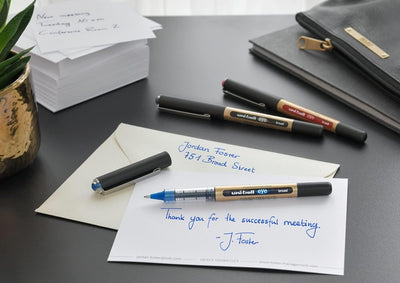 New meeting
Tuesday 10 a.m.
Conference Room 2
uni-ball eye
uni-ball eye broad
Jordan Foster
751 Broad Street
uni-ball eye broad
Thank you for the successful meeting.
- J. Foster